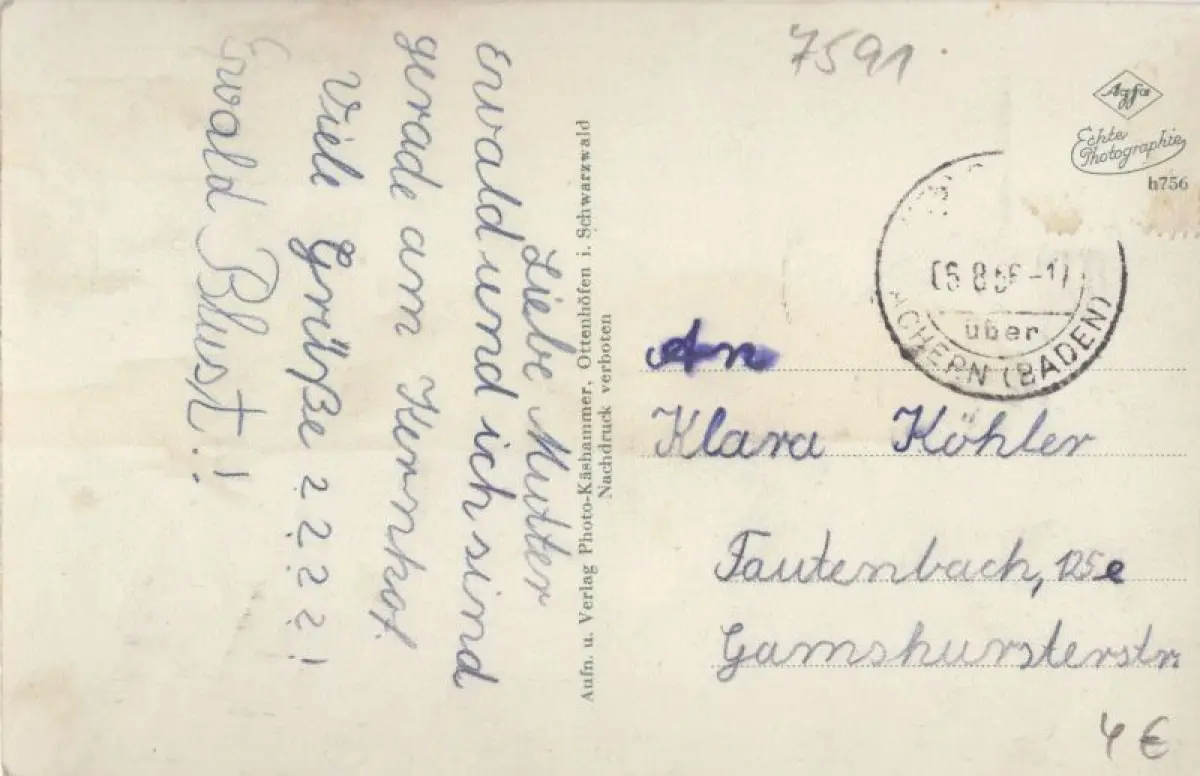 Liebe Mutter
Erwald und ich sind
gerade am Kernhof.
Viele Grüße ? ? ? ? !
Ewald Blust!!
Aufn. u. Verlag Photo-Käshammer, Ottenhöfen i. Schwarzwald
Nachdruck verboten
7591
Agfa
Echte
Photographie
h756
über
ACHERN (BADEN)
An
Klara Köhler
Fautenbach, 125e
Gamshursterstr
4 €